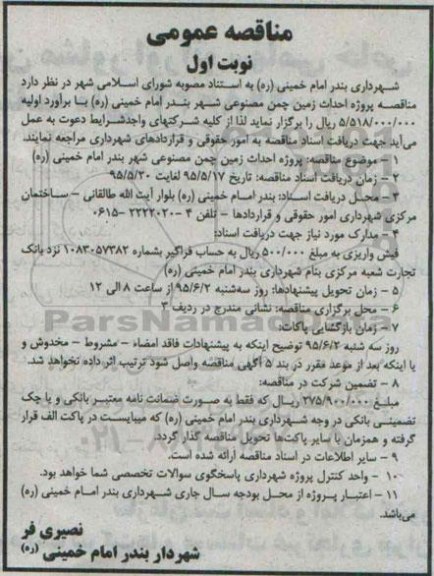 مناقصه عمومی
نوبت اول
شهرداری بندر امام خمینی (ره) به استناد مصوبه شورای اسلامی شهر در نظر دارد
مناقصه پروژه احداث زمین چمن مصنوعی شهر بندر امام خمینی (ره) با برآورد اولیه
۵/۵۱۸/۰۰۰/۰۰۰ ریال را برگزار نماید لذا از کلیه شرکتهای واجدشرایط دعوت به عمل
می‌آید جهت دریافت اسناد مناقصه به امور حقوقی و قراردادهای شهرداری مراجعه نمایند.
۱ – موضوع مناقصه: پروژه احداث زمین چمن مصنوعی شهر بندر امام خمینی (ره)
۲ – زمان دریافت اسناد مناقصه: تاریخ ۹۵/۵/۱۷ لغایت ۹۵/۵/۳۰
۳ – محل دریافت اسناد: بندر امام خمینی (ره) بلوار آیت الله طالقانی – ساختمان
مرکزی شهرداری امور حقوقی و قراردادها – تلفن ۴ –۲۲۲۲۰۲۰ –۰۶۱۵
۴ – مدارک مورد نیاز جهت دریافت اسناد:
فیش واریزی به مبلغ ۵۰۰/۰۰۰ ریال به حساب فراگیر بشماره ۱۰۸۳۰۵۷۳۸۲ نزد بانک
تجارت شعبه مرکزی بنام شهرداری بندر امام خمینی (ره)
۵ – زمان تحویل پیشنهادها: روز سه‌شنبه ۹۵/۶/۲ از ساعت ۸ الی ۱۲
۶ – محل برگزاری مناقصه: نشانی مندرج در ردیف ۳
۷ – زمان بازگشایی پاکات:
روز سه شنبه ۹۵/۶/۲ توضیح اینکه به پیشنهادات فاقد امضاء – مشروط – مخدوش و
یا اینکه بعد از موعد مقرر در بند ۵ آگهی مناقصه واصل شود ترتیب اثر داده نخواهد شد.
۸ – تضمین شرکت در مناقصه:
مبلغ ۲۷۵/۹۰۰/۰۰۰ ریال که فقط به صورت ضمانت نامه معتبر بانکی و یا چک
تضمینی بانکی در وجه شهرداری بندر امام خمینی (ره) که میبایست در پاکت الف قرار
گرفته و همزمان با سایر پاکت‌ها تحویل مناقصه گذار گردد.
۹ – سایر اطلاعات در اسناد مناقصه ارائه شده است.
۱۰ – واحد کنترل پروژه شهرداری پاسخگوی سوالات تخصصی شما خواهد بود.
۱۱ – اعتبار پروژه از محل بودجه سال جاری شهرداری بندر امام خمینی (ره)
می‌باشد.
نصیری فر
شهردار بندر امام خمینی (ره)